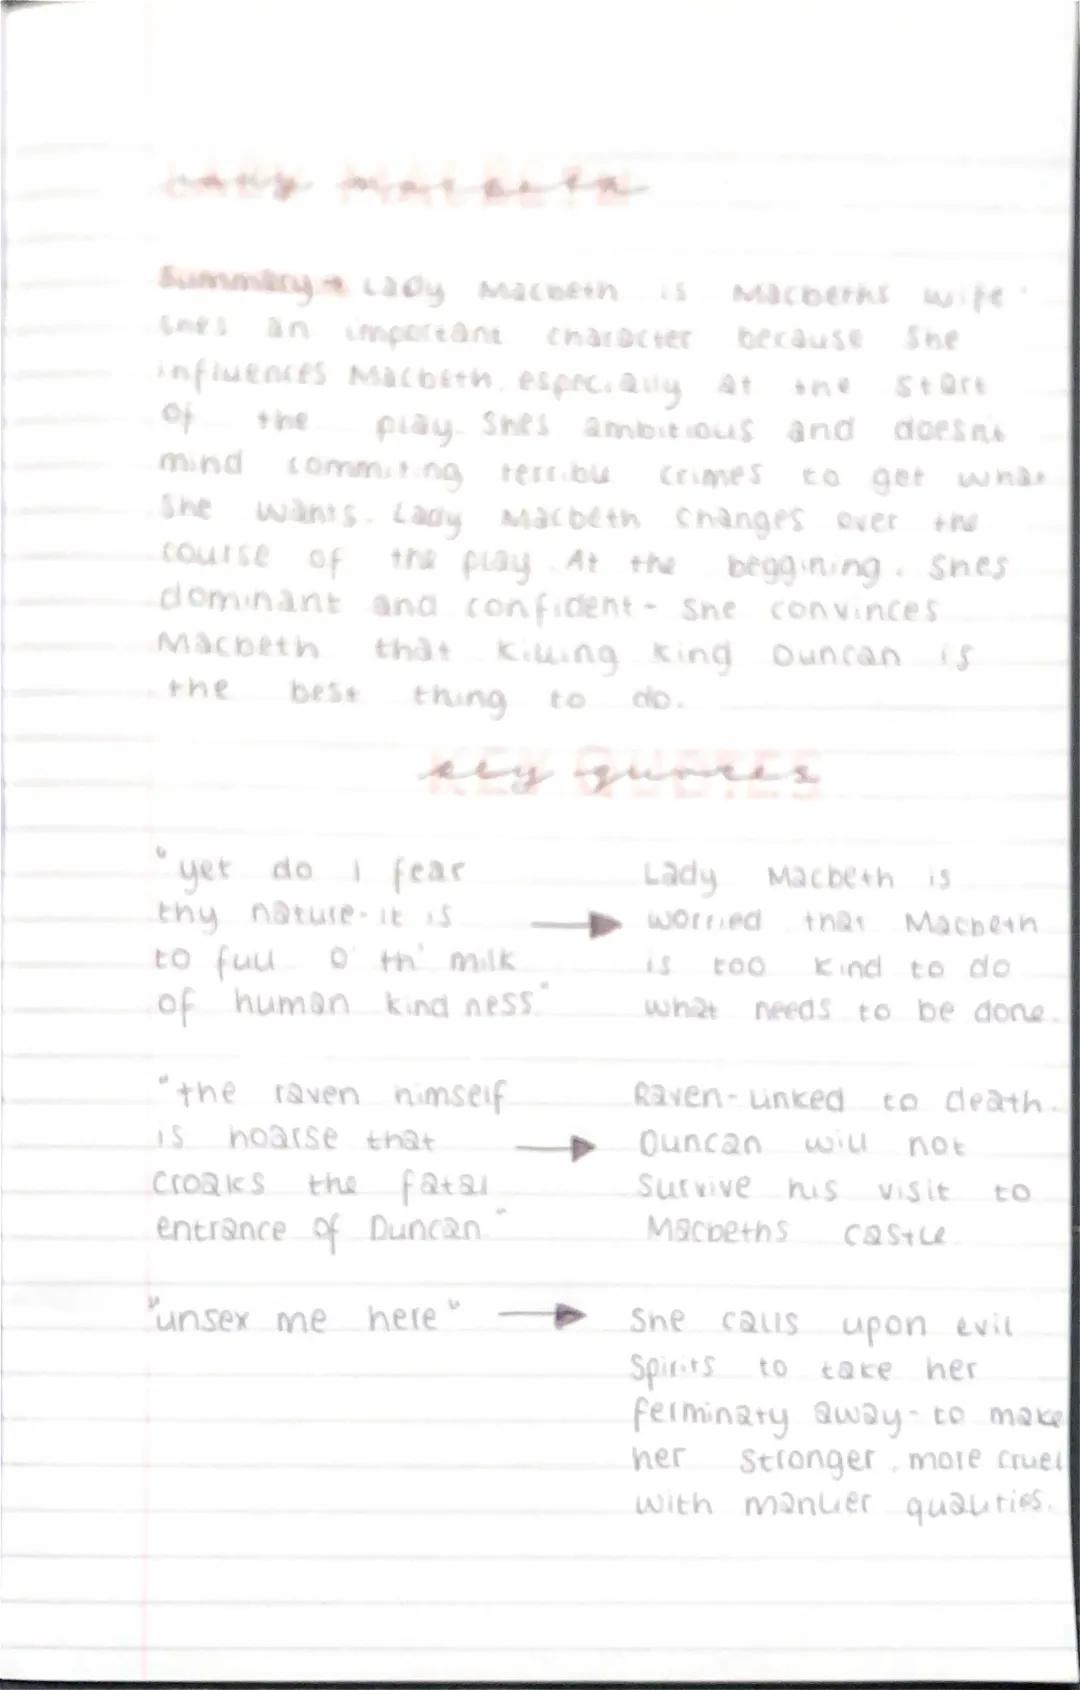 Lady Macbeth
LADY MACBETH
Summary → Lady Macbeth is Macbeths wife.
Shes an important character because she
influences Macbeth, especially at the start
of the play. Shes ambitious and doesn't
mind commiting terrible crimes to get what
she wants. Lady Macbeth changes over the
course of the play. At the beggining, shes
dominant and confident - she convinces
Macbeth that killing king Duncan is
the best thing to do.
key quotes
KEY QUOTES
"yet do I fear
thy nature- it is
to full o' th' milk
of human kind ness."
→ Lady Macbeth is
worried that Macbeth
is too kind to do
what needs to be done.
"the raven himself
is hoarse that
croaks the fatal
entrance of Duncan."
→ Raven- linked to death.
Duncan will not
survive his visit to
Macbeths castle
"unsex me here"
→ She calls upon evil
spirits to take her
ferminaty away- to make
her stronger, more cruel
with manlier qualities.